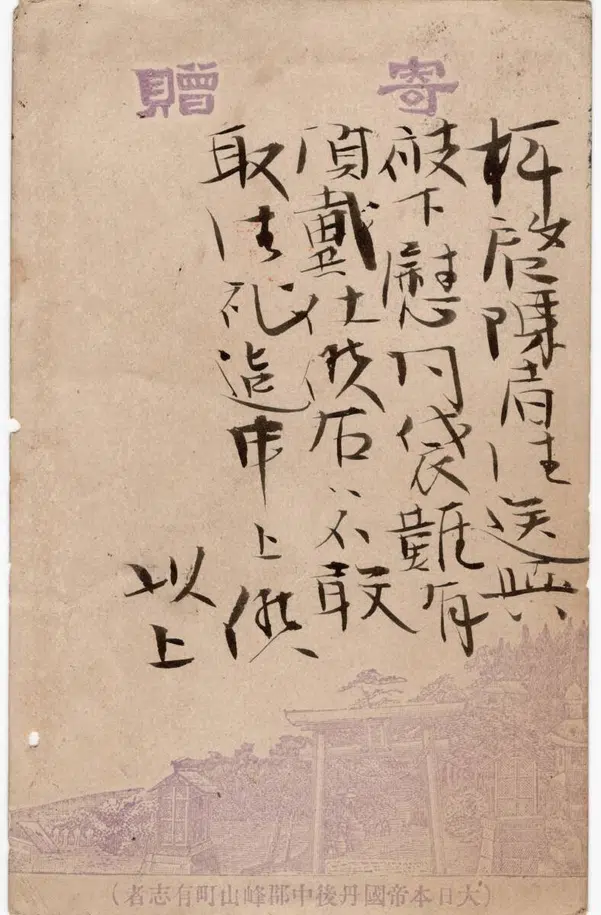 寄贈
拝啓陳者御送與
被下慰問袋難有
頂戴仕候右ハ不敢
取御礼迄申上候
以上
(大日本帝國丹後中郡峰山町有志者)